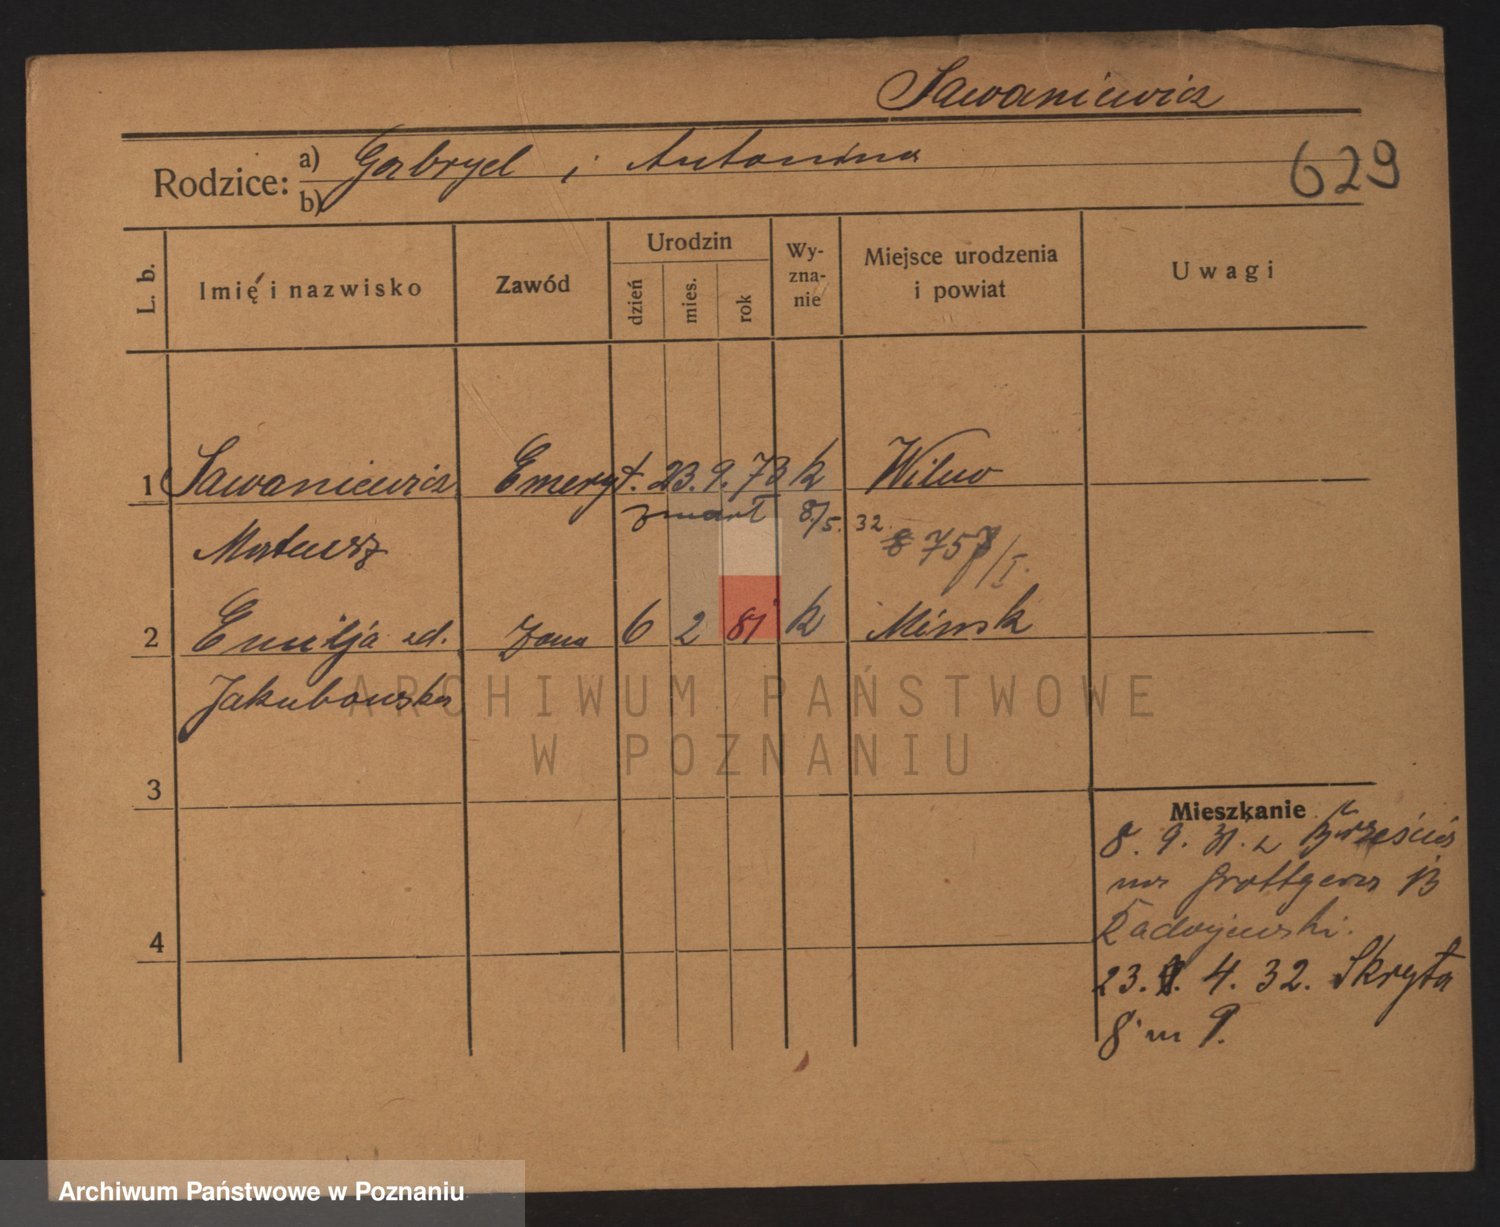 Sawaniewicz
Rodzice: a) Gabryel i Antonina
b)
629
L. b. Imię i nazwisko Zawód Urodzin dzień mies. rok Wy-zna-nie Miejsce urodzenia i powiat Uwagi
1 Sawaniewicz Emeryt. 23. 9. 73 k Wilno
zmarł 8/5. 32
Mateusz 757/I.
2 Emilja zd. Żona 6 2 81 k Mińsk
Jakubowska
ARCHIWUM PAŃSTWOWE
W POZNANIU
3
Mieszkanie
8. 9. 31. z Brześcia
na Grottgera 13
Radojewski.
4
23. 4. 32. Skryta
8 m 9.
Archiwum Państwowe w Poznaniu